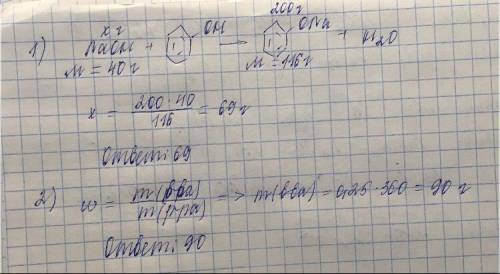 x г 200г
1) NaOH + OH → ONa + H2O
M = 40 г M = 116 г
x = 200·40 / 116 = 69 г
Ответ: 69
2) w = m(в-ва) / m(р-ра) => m(в-ва) = 0,25·360 = 90 г
Ответ: 90